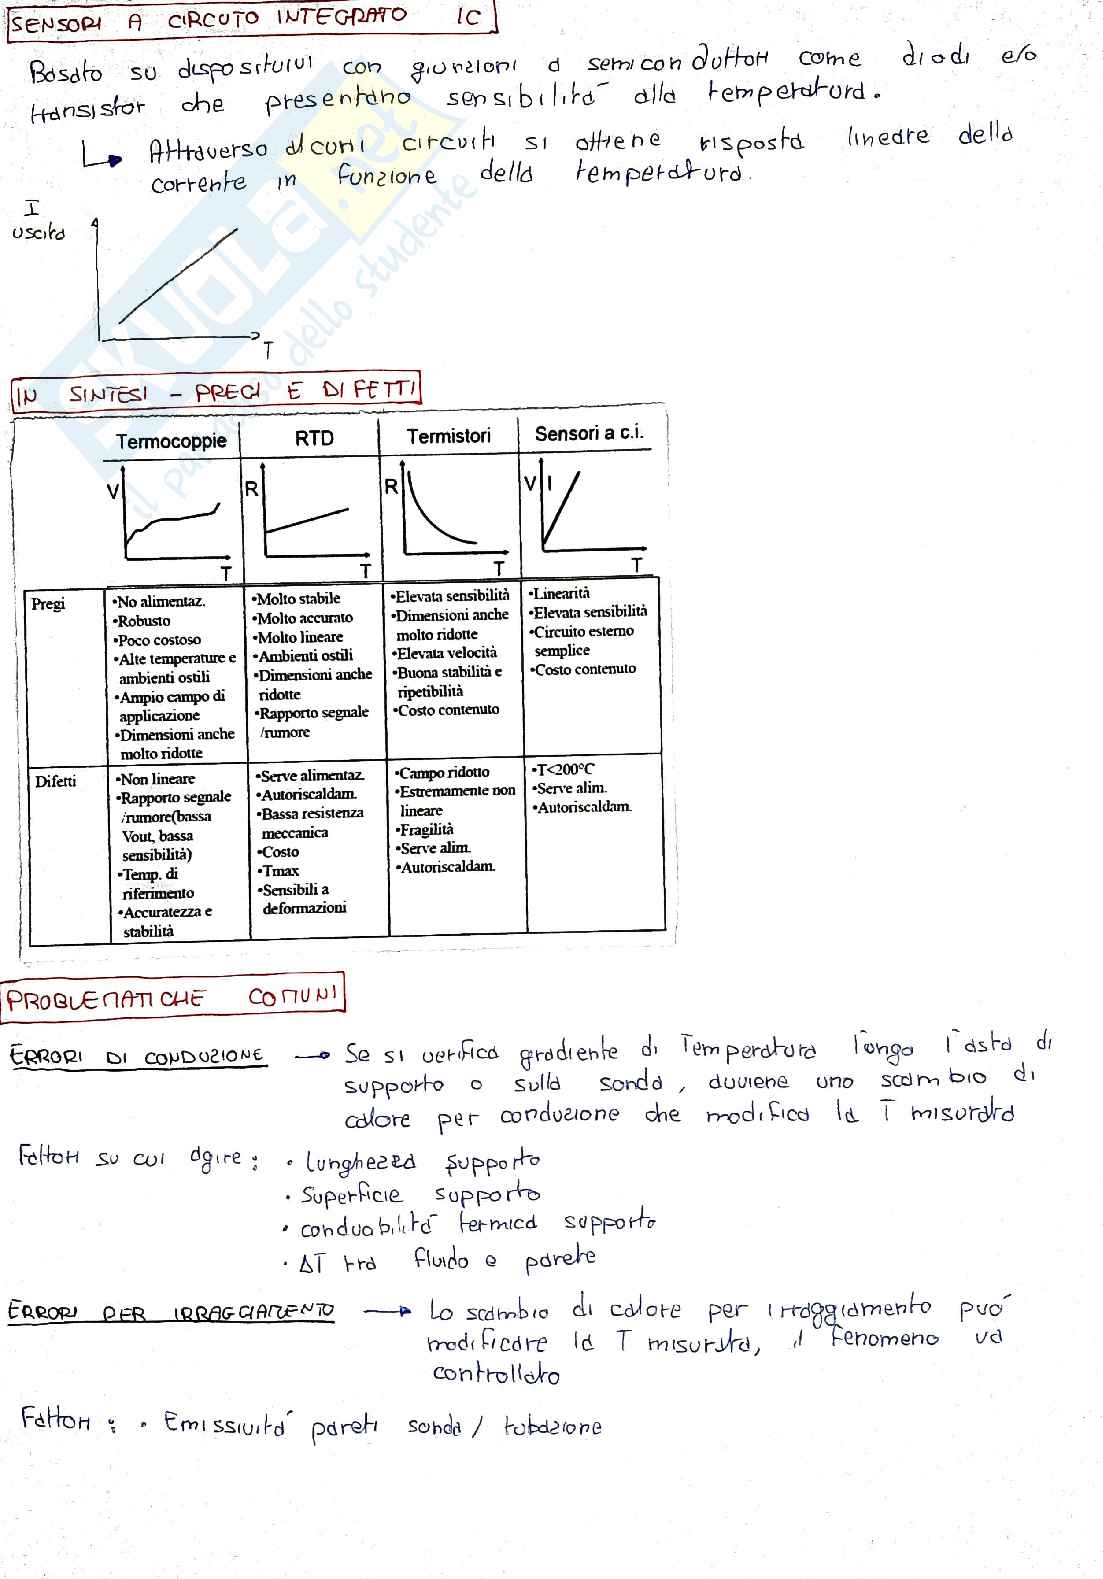 SENSORI A CIRCUTO INTEGRATO IC
Basato su dispositivi con giunzioni a semiconduttori come diodi e/o
transistor che presentano sensibilità alla temperatura.
Attraverso alcuni circuiti si ottiene risposta lineare della
corrente in funzione della temperatura.
I
uscita
T
SKUOLA.net
il paradiso dello studente
IN SINTESI - PREGI E DIFETTI
Termocoppie RTD Termistori Sensori a c.i.
V R R V I
T T T T
Pregi
•No alimentaz.
•Robusto
•Poco costoso
•Alte temperature e
ambienti ostili
•Ampio campo di
applicazione
•Dimensioni anche
molto ridotte
•Molto stabile
•Molto accurato
•Molto lineare
•Ambienti ostili
•Dimensioni anche
ridotte
•Rapporto segnale
/rumore
•Elevata sensibilità
•Dimensioni anche
molto ridotte
•Elevata velocità
•Buona stabilità e
ripetibilità
•Costo contenuto
•Linearità
•Elevata sensibilità
•Circuito esterno
semplice
•Costo contenuto
Difetti
•Non lineare
•Rapporto segnale
/rumore(bassa
Vout, bassa
sensibilità)
•Temp. di
riferimento
•Accuratezza e
stabilità
•Serve alimentaz.
•Autoriscaldam.
•Bassa resistenza
meccanica
•Costo
•Tmax
•Sensibili a
deformazioni
•Campo ridotto
•Estremamente non
lineare
•Fragilità
•Serve alim.
•Autoriscaldam.
•T<200°C
•Serve alim.
•Autoriscaldam.
PROBLEMATICHE COMUNI
ERRORI DI CONDUZIONE → Se si verifica gradiente di Temperatura lungo l'asta di
supporto o sulla sonda, avviene uno scambio di
calore per conduzione che modifica la T misurata
Fattori su cui agire: • lunghezza supporto
• Superficie supporto
• conduabilità termica supporto
• ΔT tra fluido e parete
ERRORI PER IRRAGGIAMENTO → Lo scambio di calore per irraggiamento può
modificare la T misurata, il fenomeno va
controllato
Fattori: • Emissività pareti sonda / tubazione